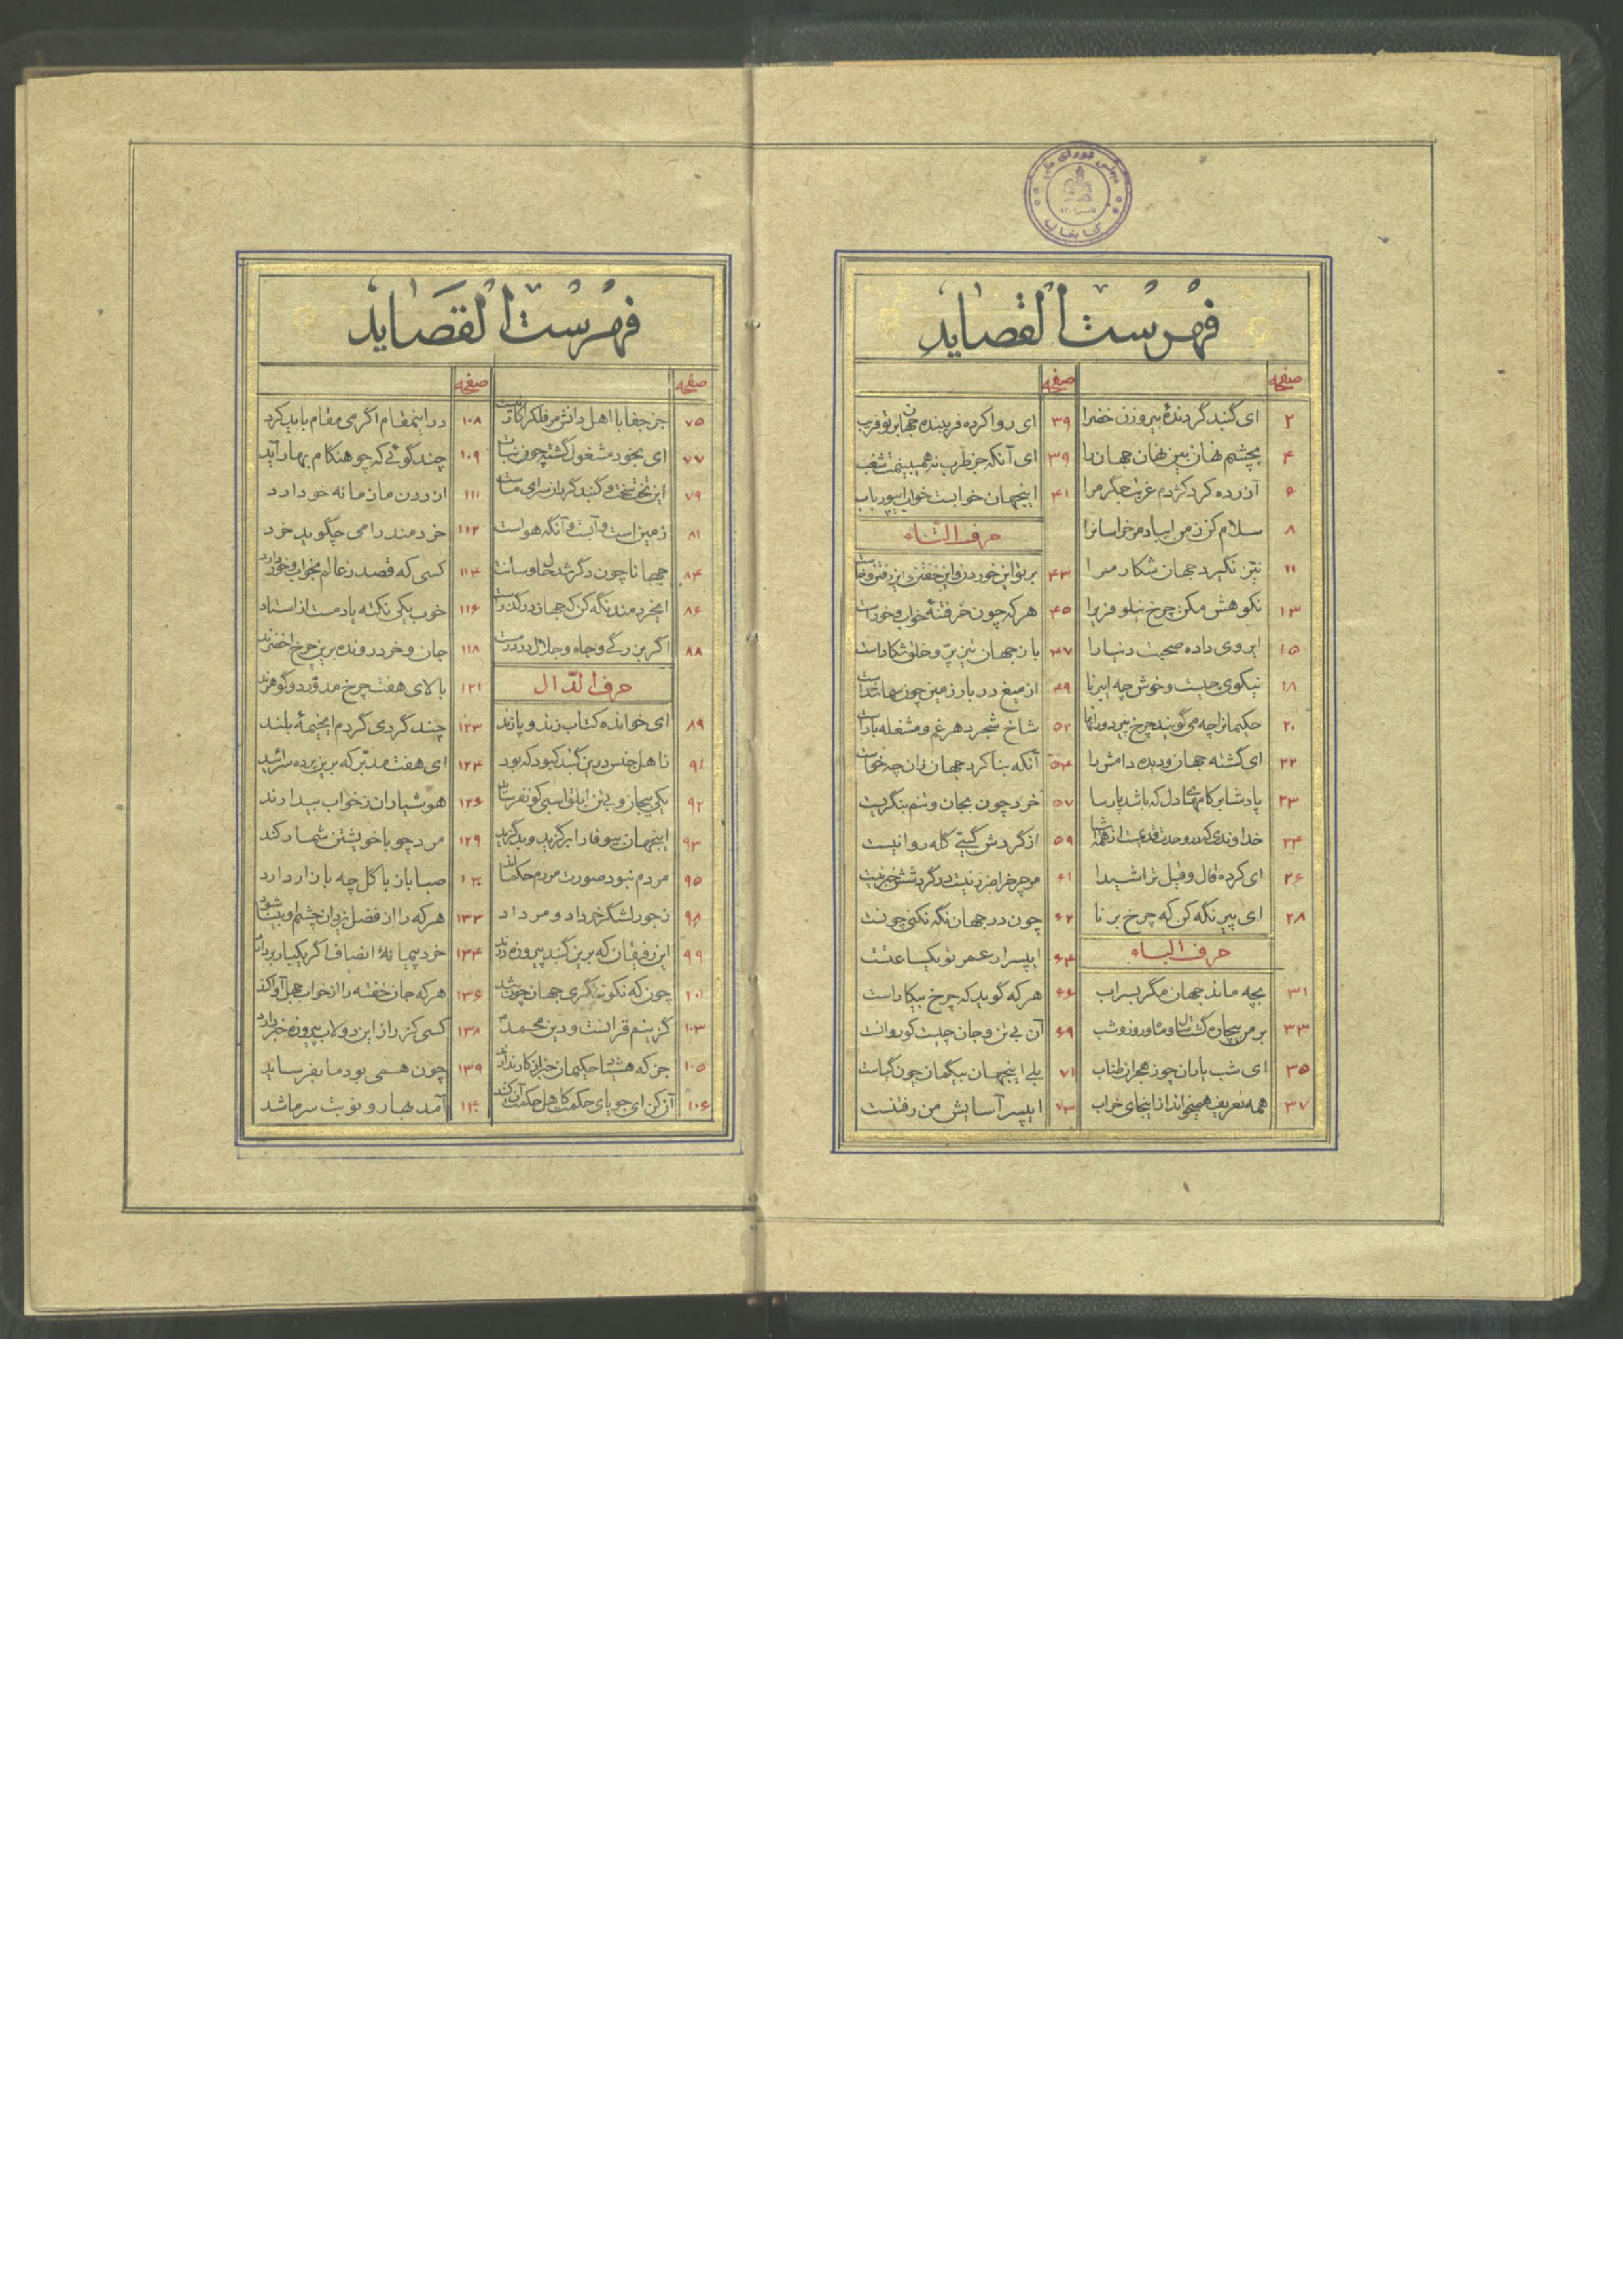 فهرست القصاید
صفحه
۲ ای گنبد گردندهٔ بیروزن خضرا
۴ بچشم نهان بین نهان جهان را
۶ آزرده کرد کژدم غربت جگر مرا
۸ سلام کن ز من ای باد مر خراسانرا
۱۱ نیز نگیرد جهان شکار مرا
۱۳ نکوهش مکن چرخ نیلوفریرا
۱۵ ای روی داده صحبت دنیا را
۱۸ نیکوی چیست و خوش چه ای برنا
۲۰ حکیمانرا چه می گویند چرخ پیر و دورانها
۲۲ ای گشته جهان و دیده دامش را
۲۳ پادشا بر کامهای دل که باشد پارسا
۲۴ خداوندی که در وحدت قدیمست از همه اشیا
۲۶ ای کرده قال و قیل ترا شیدا
۲۸ ای پیر نگه کن که چرخ برنا
حرف الباء
۳۱ بچه ماند جهان مگر بسراب
۳۳ بر من بیچاره گشت سال و ماه و روز و شب
۳۵ ای شب یازان چو ز هجران طناب
۳۷ همه تعریف همیخواند از اینجای خراب
صفحه
۳۹ ای روا کرده فریبنده جهان بر تو فریب
۳۹ ای آنکه جز طرب نه همی بینمت شغب
۴۱ اینجهان خوابست خواب ای پور باب
حرف التاء
۴۳ بر تو این خوردن و این خفتن و این رفتن و خاست
۴۵ هر که چون خر فتنهٔ خواب و خور است
۴۷ باز جهان تیز پر و خلق شکار است
۴۹ از میغ در بار زمین چون سما شد است
۵۲ شاخ شجر دهر غم و مشغله بار است
۵۴ آنکه بنا کرد جهان زان چه خواست
۵۷ خرد چون بجان و تنم بنگریست
۵۹ از گردش گیتی گله روا نیست
۶۱ مر چرخرا ضرر نیست در گردشش خبر نیست
۶۲ چون در جهان نگه نکنی چونست
۶۴ ای پسر ار عمر تو یکساعتست
۶۶ هر که گوید که چرخ بیکار است
۶۹ آن بی تن و جان چیست کو روانست
۷۱ بلی اینجهان بیگمان چون گیاست
۷۳ ای پسر آسایش من رفتنست
فهرست القصاید
صفحه
۷۵ جز جفا با اهل دانش مر فلک را کار نیست
۷۷ ای بخود مشغول گشته چون نبات
۷۹ این تخت سخت و گنبد گردان سرای ماست
۸۱ زمین است و آبست و آنگه هواست
۸۴ جهانا چون دگر شد حال و سانت
۸۶ ایخردمند نگه کن که جهان در گذر است
۸۸ اگر بزرگی و جاه و جلال در درمست
حرف الدال
۸۹ ای خوانده کتاب زند و پازند
۹۱ نا هل جنس درین گنبد کبود که بود
۹۲ یکی بیجان و بی تن ابلق اسبی کو نفرساید
۹۳ اینجهان بیوفا را بر گزید و بد گزید
۹۵ مردم نبود صورت مردم حکمااند
۹۸ ز جور لشگر خرداد و مرداد
۹۹ این رفیقان که برین گنبد پیروزه درند
۱۰۱ چون که نکو ننگری جهان چون شد
۱۰۳ گزینم قرانست و دین محمد
۱۰۵ جز که هشیار حکیمان خبر از کار ندارند
۱۰۶ آن کن ای جویای حکمت کاهل حکمت آن کنند
صفحه
۱۰۸ در اینمقام اگر می مقام باید کرد
۱۰۹ چند گوئی که چو هنگام بهار آید
۱۱۱ ان ردن مان ما نه خو دارد
۱۱۲ خردمند را می چگوید خرد
۱۱۴ کسی که قصد ز عالم بخواب و خور دارد
۱۱۶ خوب یکی نکته یادمست از استاد
۱۱۸ جان و خرد رونده برین چرخ اخضرند
۱۲۱ بالای هفت چرخ مدور دو گوهرند
۱۲۳ چند گردی گردم ایخیمهٔ بلند
۱۲۴ ای هفت مدبر که برین پرده سرائید
۱۲۶ هوشیاران ز خواب بیدارند
۱۲۹ مرد چو با خویشتن شمار کند
۱۳۰ صبا باز با گل چه بازار دارد
۱۳۲ هر که را از فضل یزدان چشم او بینا شود
۱۳۴ خرد پیمانهٔ انصاف اگر یکبار بردارد
۱۳۶ هر که جان خفته را از خواب جهل آوا کند
۱۳۸ کسی کز راز این دولاب پیروزه خبر دارد
۱۳۹ چون همی بود ما بفرساید
۱۴۰ آمد بهار و نوبت سرما شد